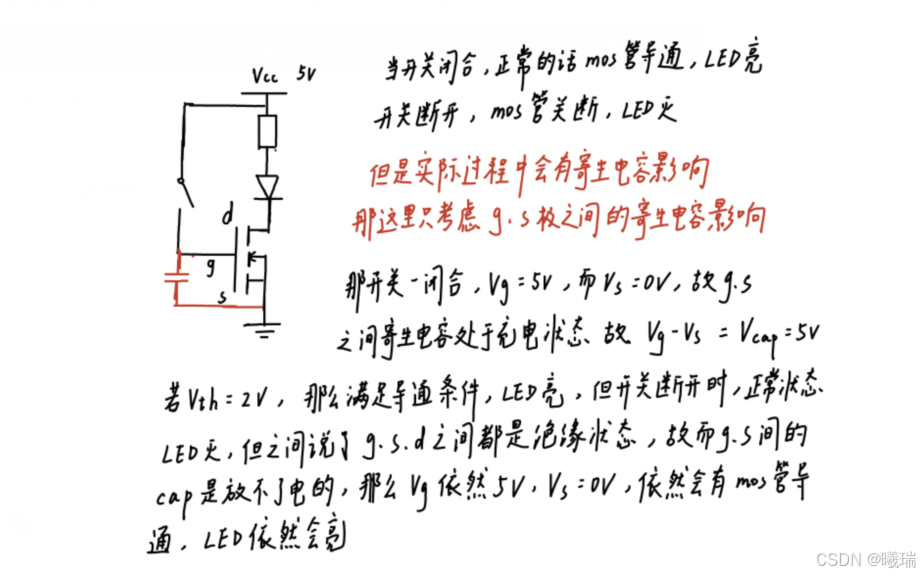 Vcc 5V
当开关闭合，正常的话mos管导通，LED亮
开关断开，mos管关断，LED灭
但是实际过程中会有寄生电容影响
那这里只考虑g.s极之间的寄生电容影响
d
g
s
那开关一闭合，Vg=5V，而Vs=0V，故g.s
之间寄生电容处于充电状态.故 Vg-Vs = Vcap=5V
若Vth=2V，那么满足导通条件，LED亮，但开关断开时，正常状态
LED灭，但之间说了g.s.d之间都是绝缘状态，故而g.s间的
cap是放不了电的，那么Vg依然5V，Vs=0V，依然会有mos管导
通，LED依然会亮
CSDN @曦瑞